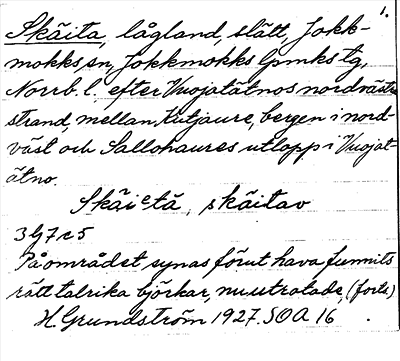 1.
Skäita, lågland, slätt, Jokk-
mokks sn, Jokkmokks lpmks tg,
Norrb. l. efter Vuojatätnos nordvästra
strand, mellan Kutjaure, bergen i nord-
väst och Sallohaures utlopp i Vuojat-
ätno.
Skäietä, skäitav
3 G 7 c 5
På området synas förut hava funnits
rätt talrika björkar, nu utrotade, (forts)
H. Grundström 1927. SOA 16.